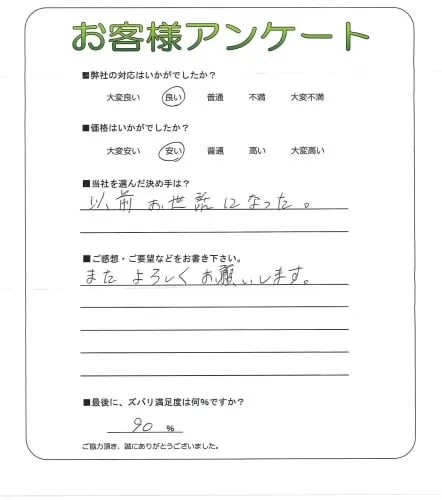 お客様アンケート
■弊社の対応はいかがでしたか?
大変良い 良い 普通 不満 大変不満
■価格はいかがでしたか?
大変安い 安い 普通 高い 大変高い
■当社を選んだ決め手は?
以前お世話になった。
■ご感想・ご要望などをお書き下さい。
またよろしくお願いします。
■最後に、ズバリ満足度は何%ですか?
90 %
ご協力頂き、誠にありがとうございました。